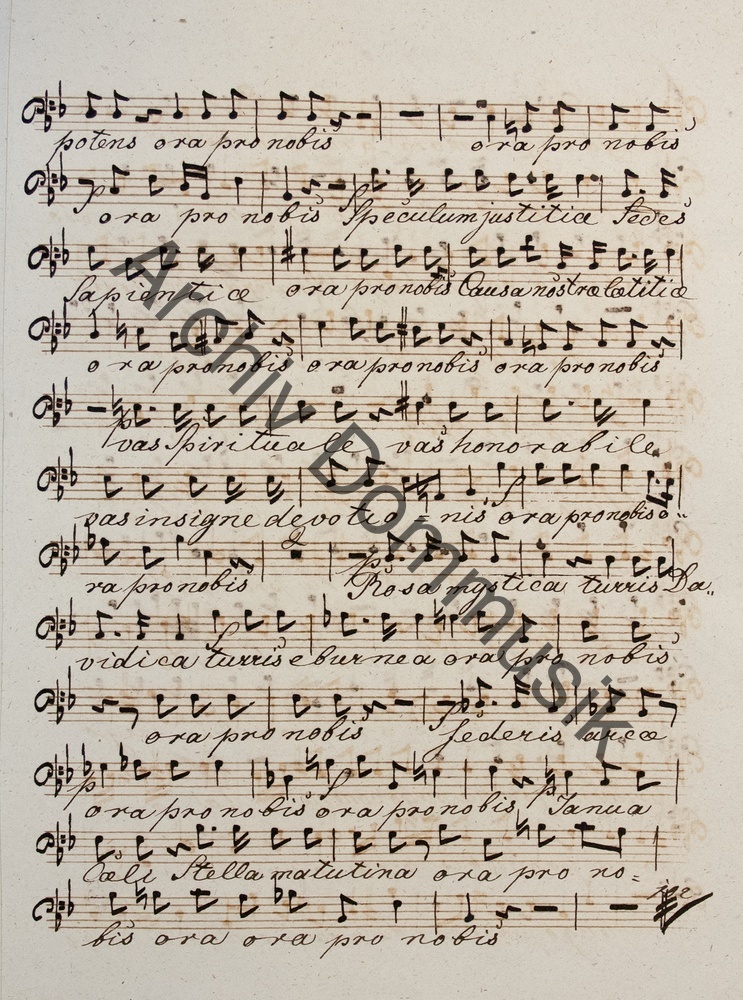 potens ora pro nobis ora pro nobis
ora pro nobis Speculum justitiæ Sedes
Sapientiæ ora pro nobis Causa nostræ lætitiæ
ora pro nobis ora pro nobis ora pro nobis
vas Spirituale vas honorabile
vas insigne devotio = nis ora pro nobis o..
ra pro nobis Rosa mystica turris Da..
vidica turris eburnea ora pro nobis
ora pro nobis fæderis arcæ
ora pro nobis ora pro nobis Janua
Cæli Stella matutina ora pro no=
bis ora ora pro nobis
Archiv Dommusik